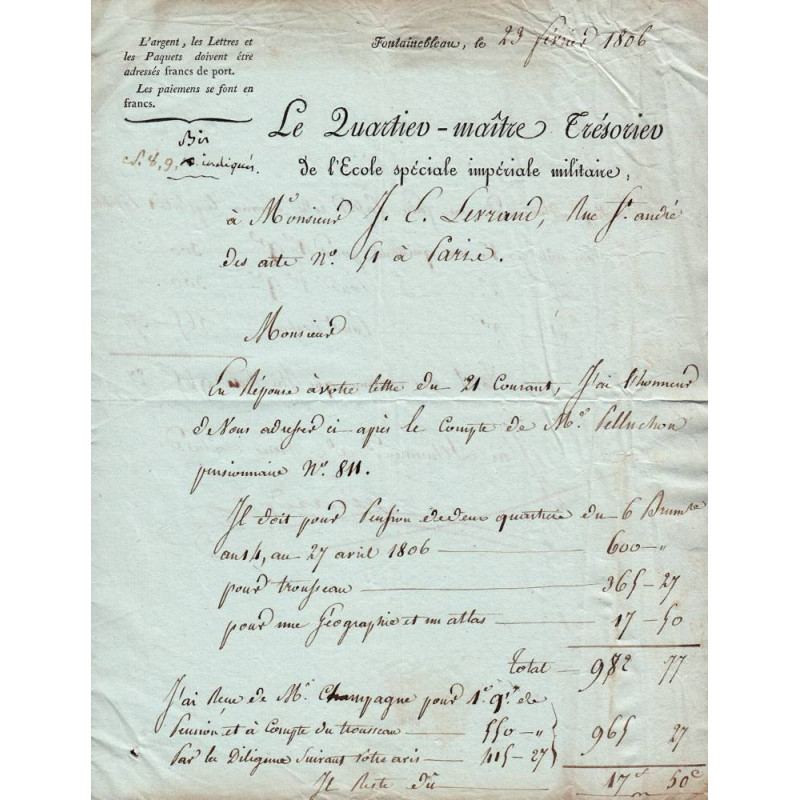 L'argent, les Lettres et
les Paquets doivent être
adressés francs de port.
Les paiemens se font en
francs.
Bis
8, 9, indiqués.
Fontainebleau, le 23 février 1806
Le Quartier-maître Trésorier
de l'Ecole spéciale impériale militaire,
à Monsieur J. E. Levrand, Rue St. andré
des arts No. 51 à Paris.
Monsieur
En Réponse à votre lettre du 21 Courant, J'ai l'honneur
de Vous adresser ci après le Compte de Mr. Pelluchon
pensionnaire No. 811.
Il doit pour Pension de deux quartiers du 6 Brumre
an 14, au 27 avril 1806 — 600 - „
pour trousseau — 365 - 27
pour une Géographie et un atlas — 17 - 50
Total — 982 77
J'ai Reçu de Mr. Champagne pour 1er qer de
Pension et à Compte du trousseau — 550 - „
Par la Diligence Suivant votre avis — 415 - 27 } 965 27
Il Reste dû — 17f 50c